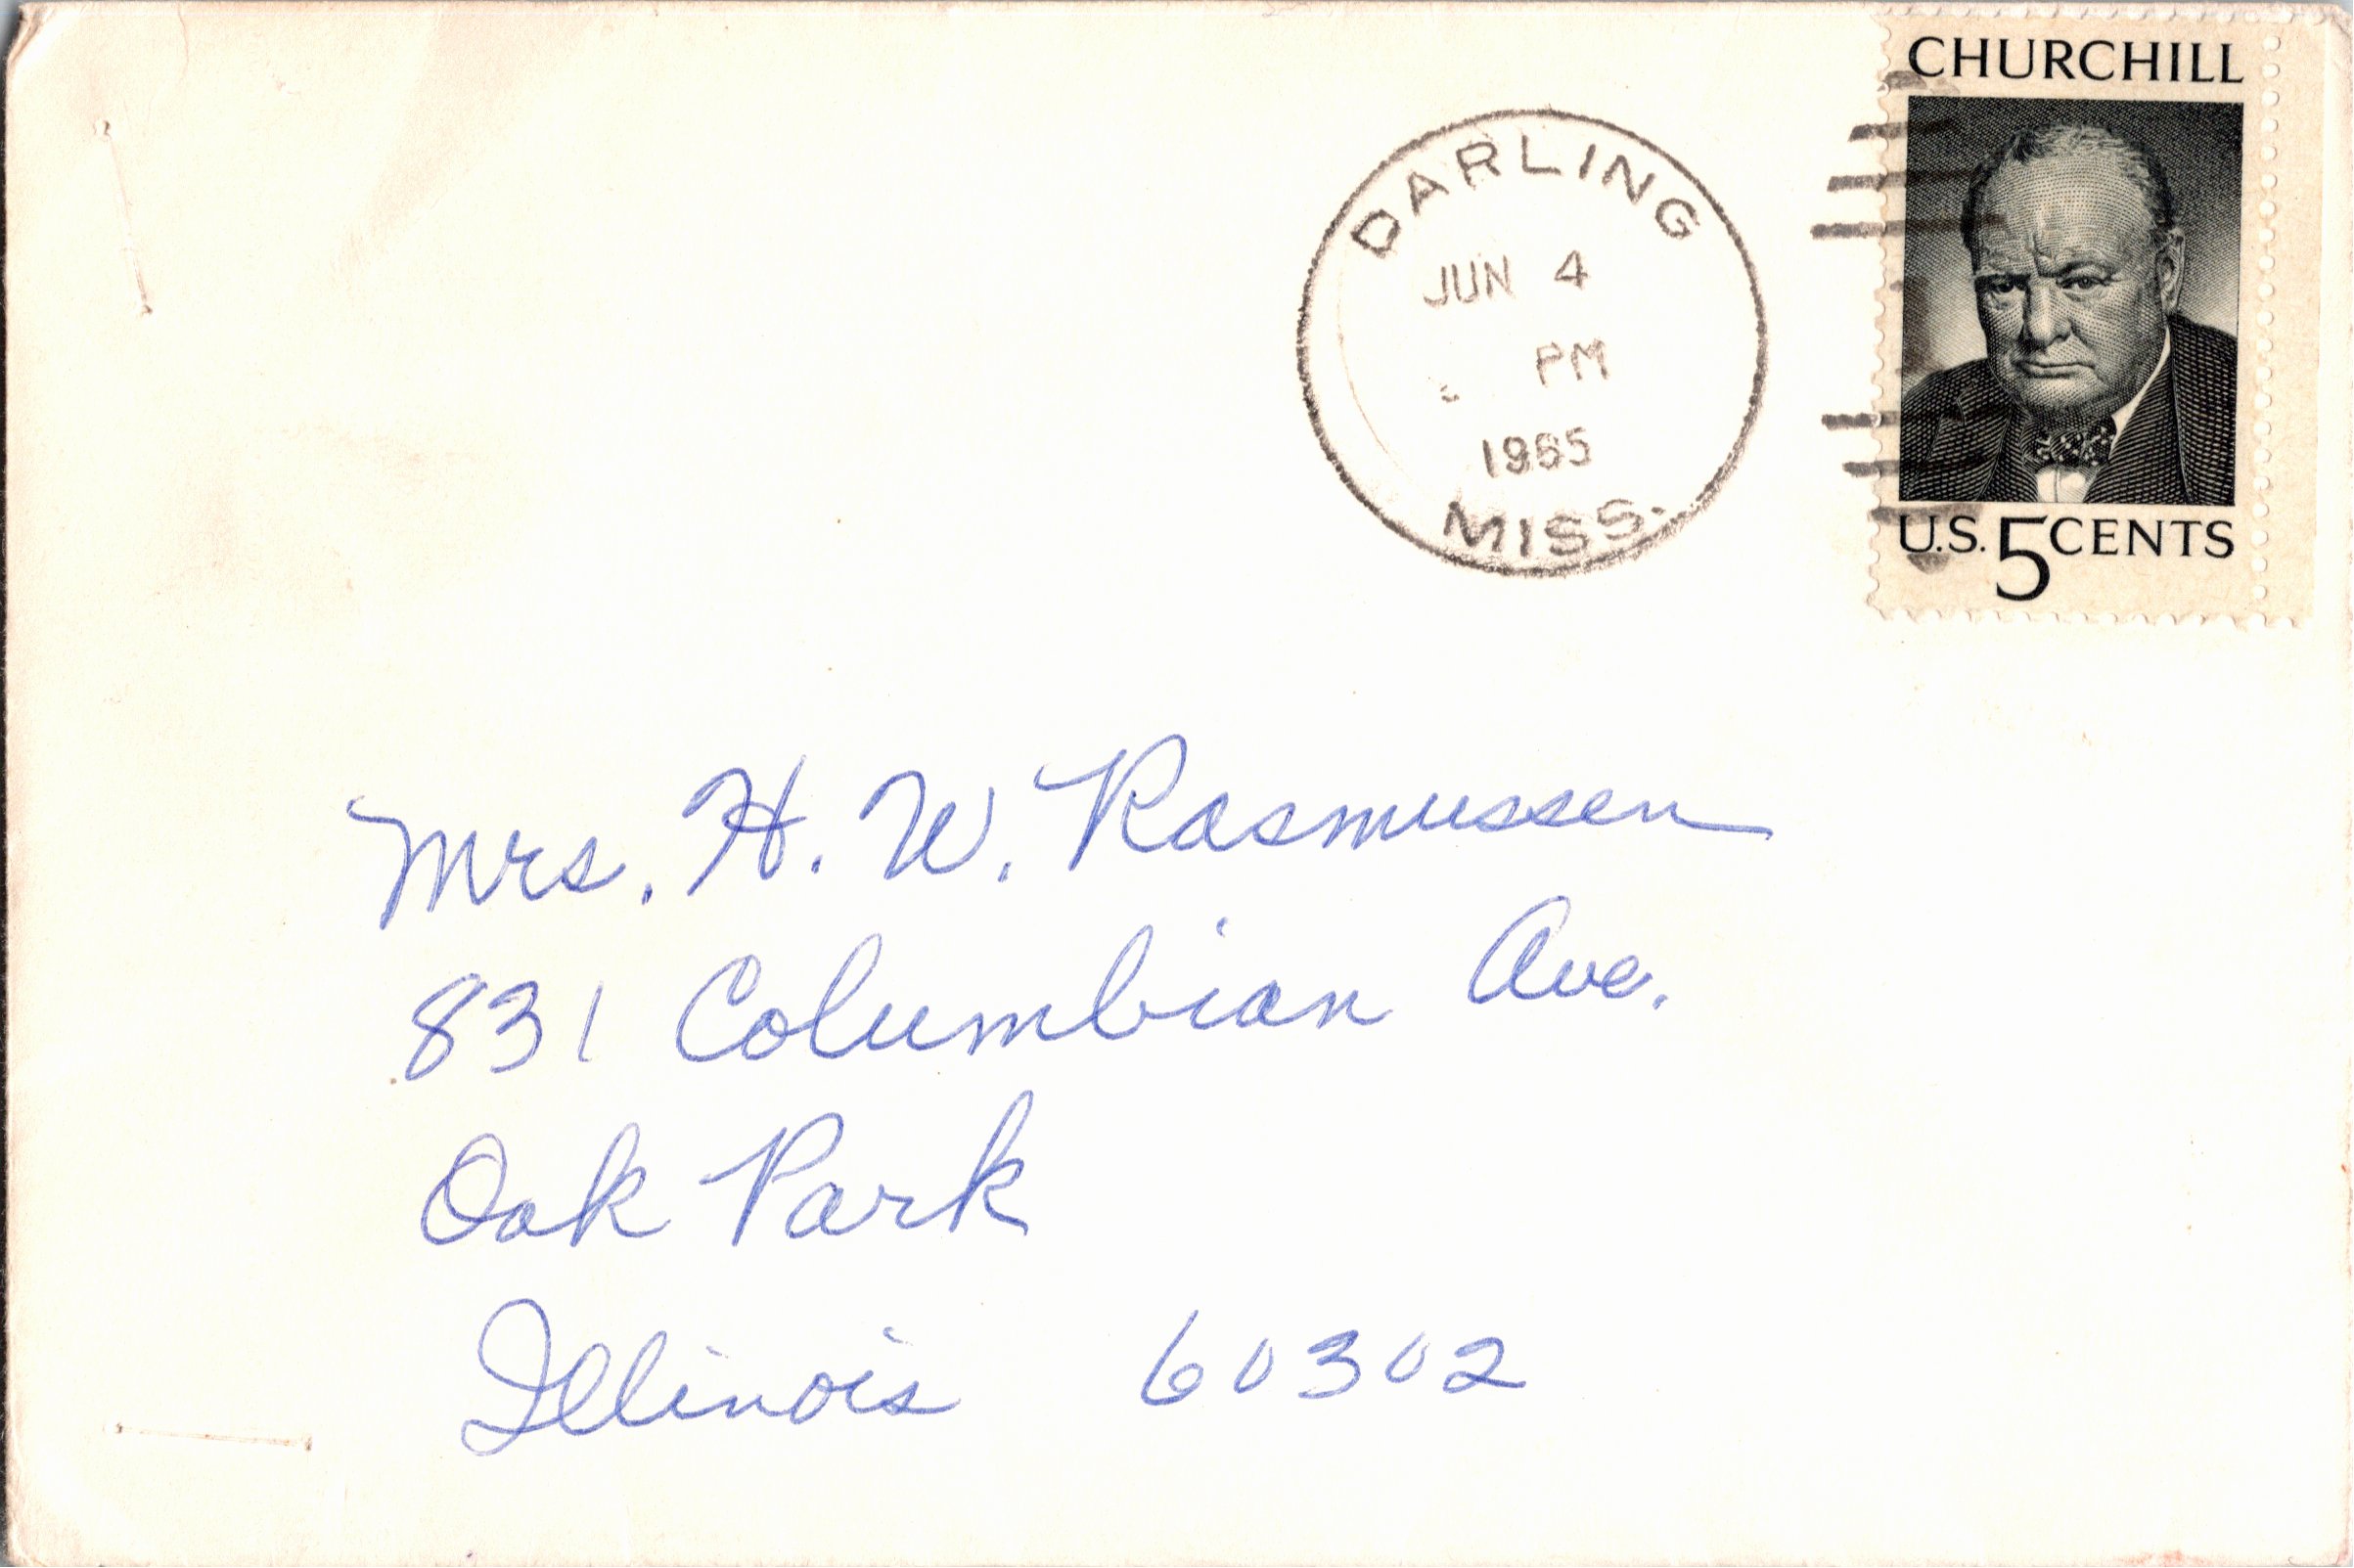 CHURCHILL
DARLING
JUN 4
PM
1965
MISS.
U.S. 5 CENTS
Mrs. H. W. Rasmussen
831 Columbian Ave.
Oak Park
Illinois 60302